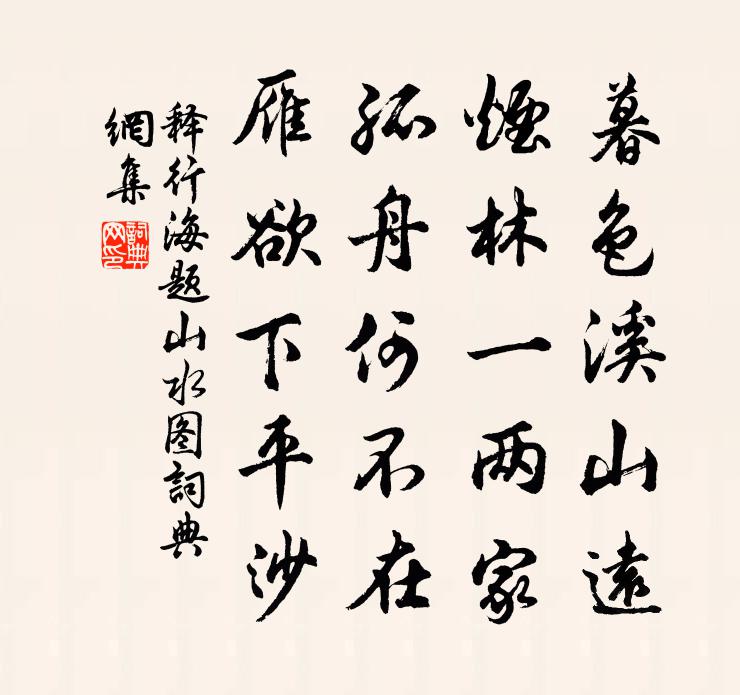 暮色溪山遠
煙林一两家
孤舟何不在
雁欲下平沙
释行海题山水图詞典
網集
詞典
网印